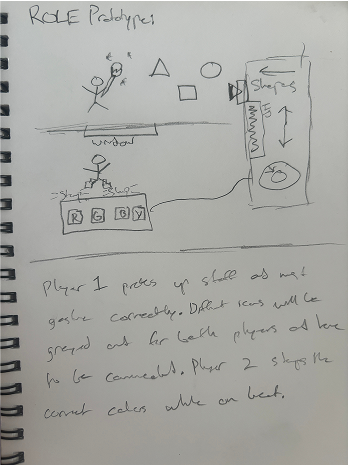 ROLE Prototypes
Shapes
window
R G B Y
Player 1 picks up staff and must
gesture correctly. Diffrent icons will be
greyed out for both players and have
to be connected. Player 2 steps the
correct colors while on beat.